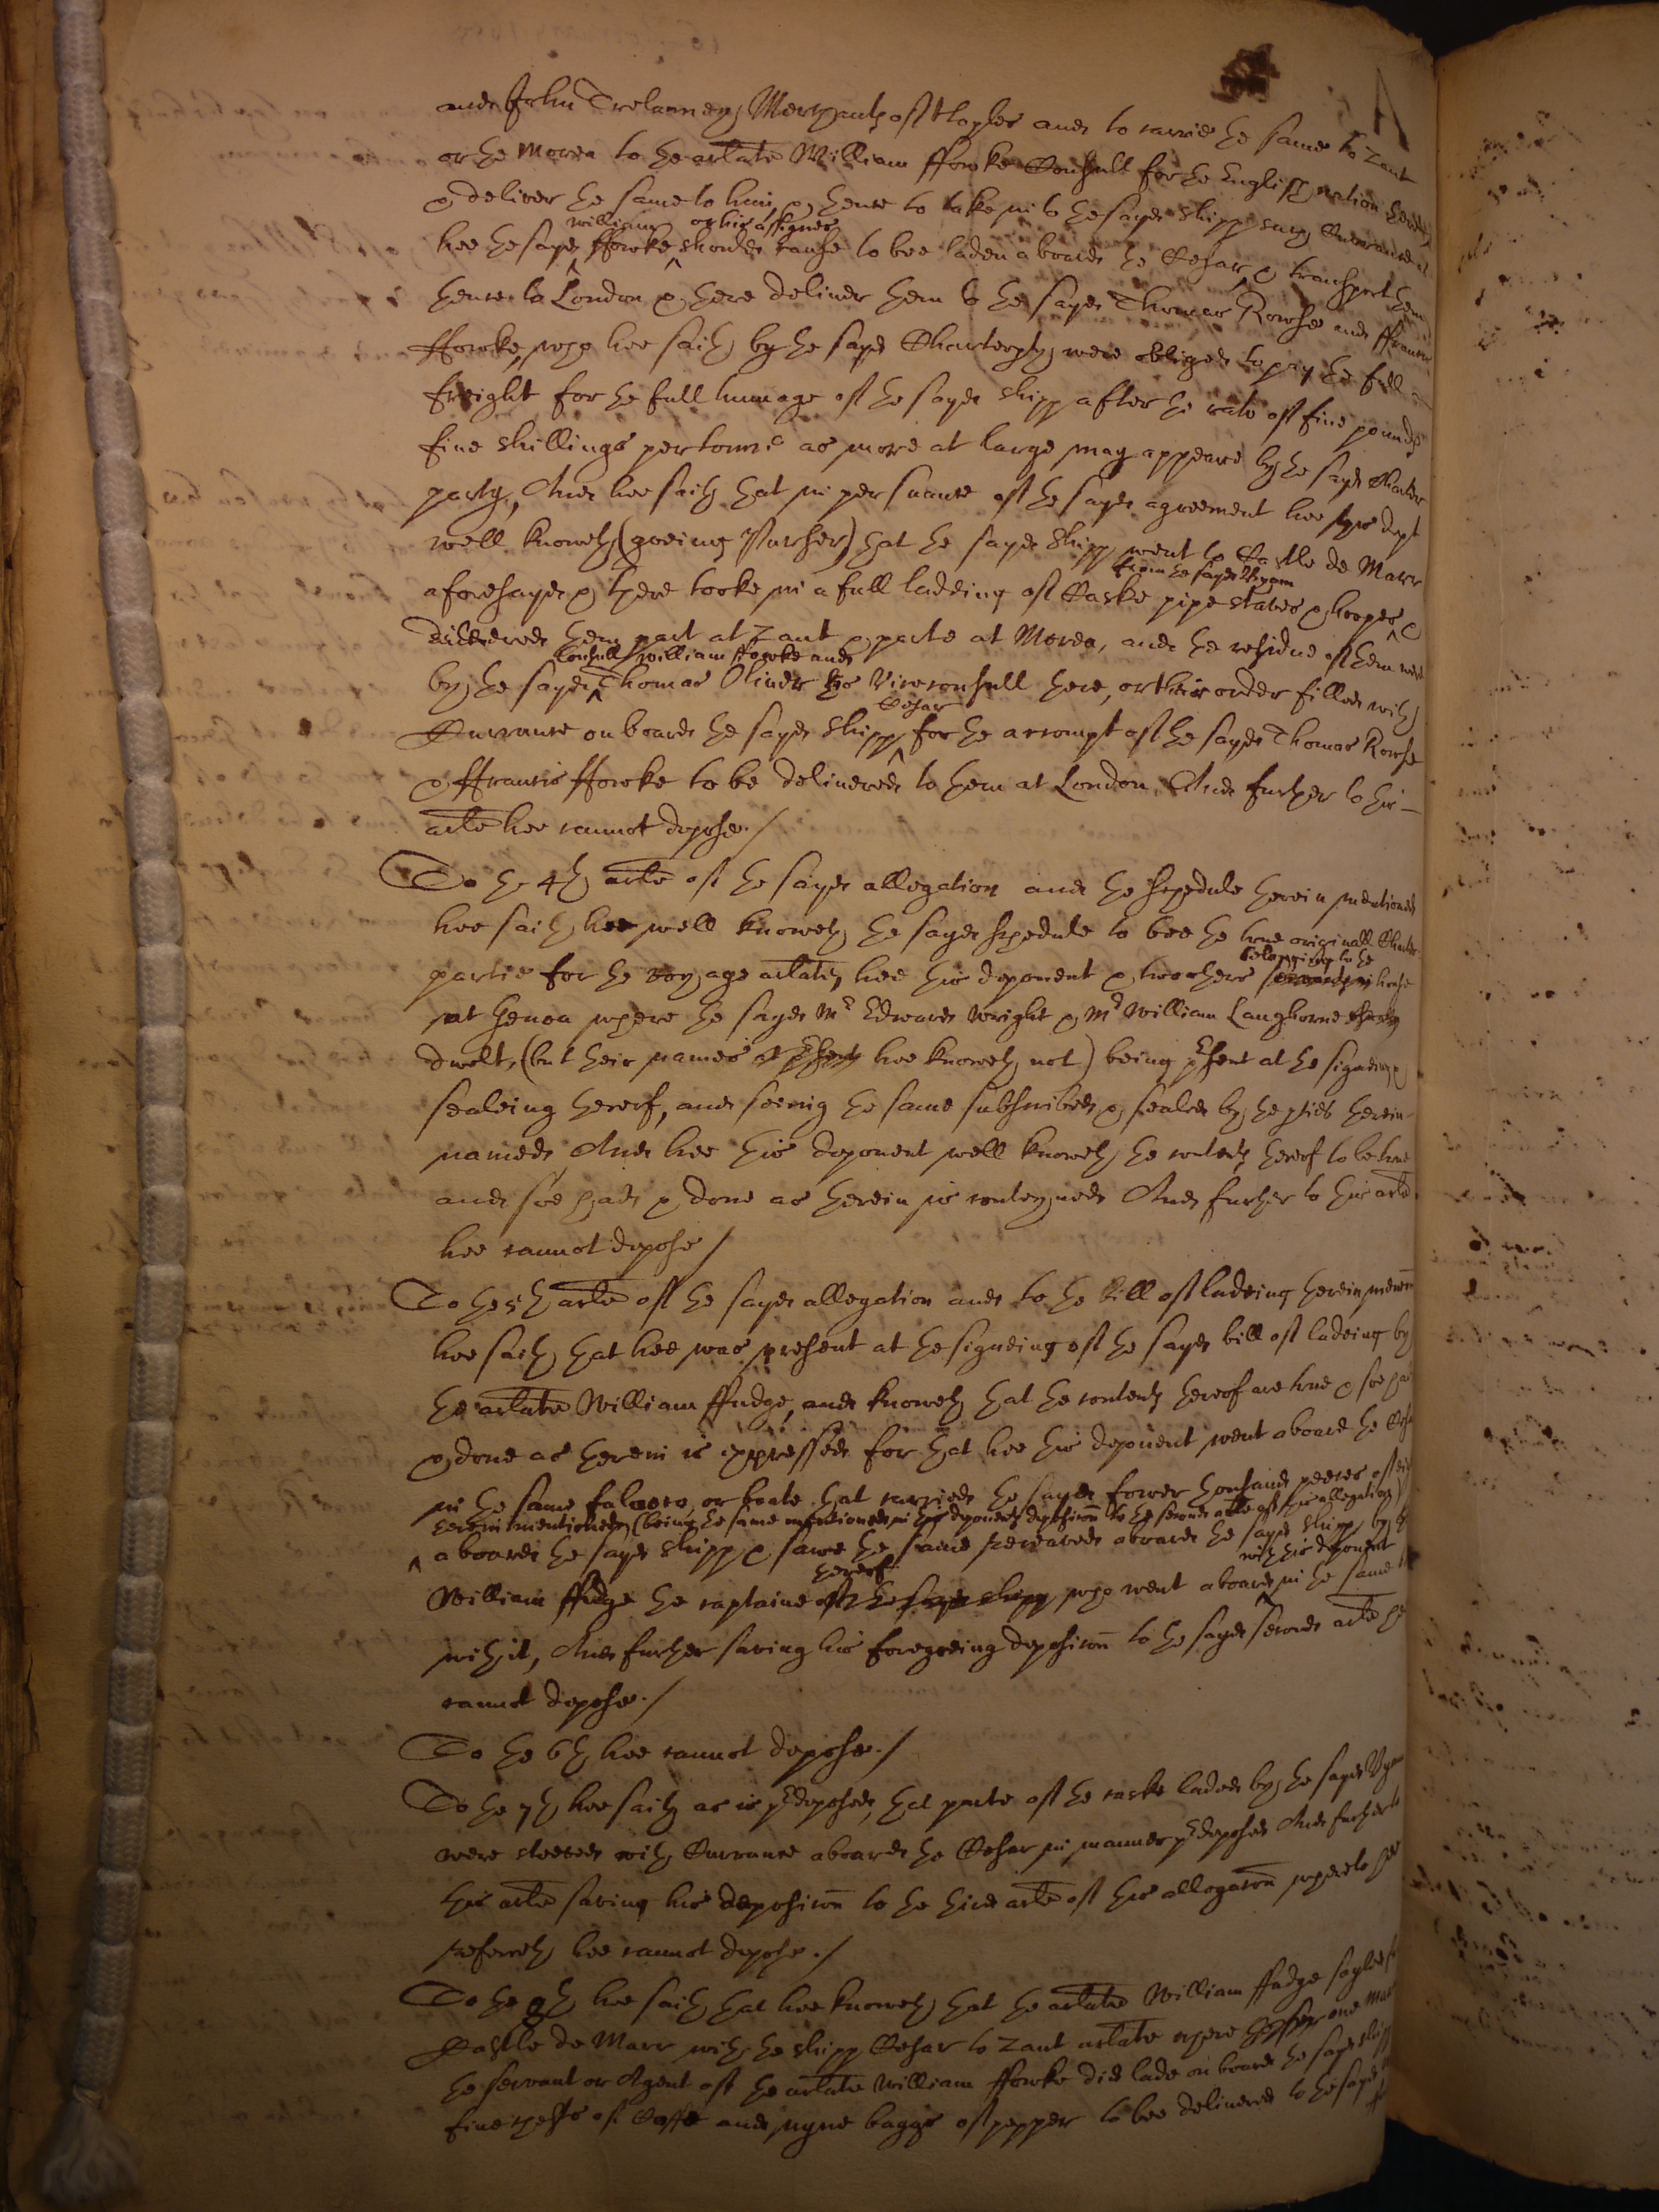 and John Trelawney Merchants of Naples and to carrie the same to Zant
or the Morea to the arlate William ffowke Consull for the English nation there
& deliver the same to him, & thence to take in to the sayd shipp such Currance as
hee the sayd william ffowke or his assignes should cause to bee laden aboard the Cesar & transport them
thence to London & there deliver them to the sayd Thomas Rowse and ffrancis
ffowke, who hee saith by the sayd Charterpty were obliged to pay the full
freight for the full tunnage of the sayd shipp after the rate of five pounds
five shillings per tonne as more at large may appeare by the sayd Charter
party, And hee saith that in persuance of the sayd agreement hee this dept
well knoweth (goeing Purser) that the sayd shipp went to Castle de Marr
aforesayd & there tooke in a full ladeing of Caske pipe staves & hoopes from the sayd Wyam &
delivered them part at Zant & parte at Morea, and the residue of them were
by the sayd Consull William ffowke and Thomas Oliver his Viceconsull there, or their order filled with
Currance on board the sayd shipp Cesar for the accompt of the sayd Thomas Rowse
& ffrancis ffowke to be delivered to them at London, And further to this
arle hee cannot depose./
To the 4th arle of the sayd allegation and the schedule therein mentioned
hee saith hee well knoweth the sayd schedule to bee the true originall Charter
partie for the voyage arlate, hee this deponent & two others belonging to the house
at Genoa where the sayd Mr Edward Wright & Mr William Langhorne
dwelt, (but their names hee knoweth not) being psent at the signeing &
sealeing thereof, and seeing the same subscribed & sealed by the pties therein
named And hee this deponent well knoweth the contents thereof to be true
and soe had & done as therein is conteyned And further to this arle
hee cannot depose /
To the 5th arle of the sayd allegation and to the bill of ladeing therein mencoed
hee saith that hee was present at the signeing of the sayd bill of ladeing by
the arlate William ffudge, and knoweth that the contents thereof are true & soe had
& done as therein is expressed for that hee this deponent went aboard the Cesar
in the same or boate that carried the sayd fower thousand peeces of
therein mentioned (being the same mentioned in this deponents deposicon to the second arle of this allegation)
aboard the sayd shipp & sawe the same received aboard the sayd shipp by the
William ffudge the captaine thereof who went aboard with this deponent in the same
with it, And further saving his foregoeing deposicon to the sayd second arle hee
cannot depose./
To the 6th hee cannot depose./
To the 7th hee saith as is pdeposed, that parte of the caske laded by the sayd Wyam
were steeved with Currance aboard the Cesar in manner pdeposed And further to
this arle saving his deposicon to the third arle of this allegacon whereto hee
referreth hee cannot depose./
To the 8th hee saith that hee knoweth that the arlate William ffudge sayled from
Castle de Marr with the shipp Cesar to Zant arlate where one
the servant or Agent of the arlate William ffowke did lade on board the sayd shipp
five chests of Coffe and nyne baggs of pepper to bee delivered to the sayd